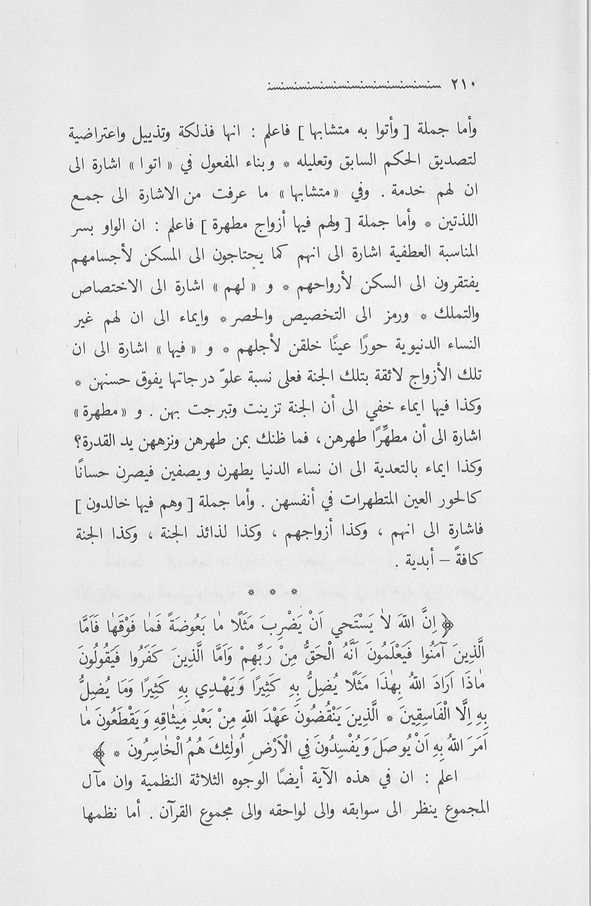 ٢١٠
وأما جملة [ وأتوا به متشابها ] فاعلم : انها فذلكة وتذييل واعتراضية
لتصديق الحكم السابق وتعليله * وبناء المفعول في « اتوا » اشارة الى
ان لهم خدمة . وفي « متشابها » ما عرفت من الاشارة الى جمع
اللذتين * وأما جملة [ ولهم فيها أزواج مطهرة ] فاعلم : ان الواو بسر
المناسبة العطفية اشارة الى انهم كما يحتاجون الى المسكن لأجسامهم
يفتقرون الى السكن لأرواحهم * و « لهم » اشارة الى الاختصاص
والتملك * ورمز الى التخصيص والحصر * وايماء الى ان لهم غير
النساء الدنيوية حورًا عينًا خلقن لأجلهم * و « فيها » اشارة الى ان
تلك الأزواج لائقة بتلك الجنة فعلى نسبة علوّ درجاتها يفوق حسنهن *
وكذا فيها ايماء خفي الى أن الجنة تزينت وتبرجت بهن . و « مطهرة »
اشارة الى أن مطهِّرًا طهرهن، فما ظنك بمن طهرهن ونزههن يد القدرة؟
وكذا ايماء بالتعدية الى ان نساء الدنيا يطهرن ويصفين فيصرن حسانًا
كالحور العين المتطهرات في أنفسهن . وأما جملة [ وهم فيها خالدون ]
فاشارة الى انهم ، وكذا أزواجهم ، وكذا لذائذ الجنة ، وكذا الجنة
كافةً – أبدية .
* * *
﴿ اِنَّ اللّٰهَ لاٰ يَسْتَحي اَنْ يَضْرِبَ مَثَلًا مٰا بَعُوضَةً فَمٰا فَوْقَهٰا فَاَمَّا
الَّذِينَ آمَنُوا فَيَعْلَمُونَ اَنَّهُ الْحَقُّ مِنْ رَبِّهِمْ وَاَمَّا الَّذِينَ كَفَرُوا فَيَقُولُونَ
مٰاذَا اَرَادَ اللّٰهُ بِهٰذَا مَثَلًا يُضِلُّ بِهِ كَثِيرًا وَيَهْدِي بِهِ كَثِيرًا وَمَا يُضِلُّ
بِهِ اِلَّا الْفَاسِقِينَ * الَّذِينَ يَنْقُضُونَ عَهْدَ اللّٰهِ مِنْ بَعْدِ مِيثَاقِهِ وَيَقْطَعُونَ مٰا
اَمَرَ اللّٰهُ بِهِ اَنْ يُوصَلَ وَيُفْسِدُونَ فِي الْاَرْضِ اُولٰئِكَ هُمُ الْخٰاسِرُونَ * ﴾
اعلم : ان في هذه الآية أيضًا الوجوه الثلاثة النظمية وان مآل
المجموع ينظر الى سوابقه والى لواحقه والى مجموع القرآن . أما نظمها